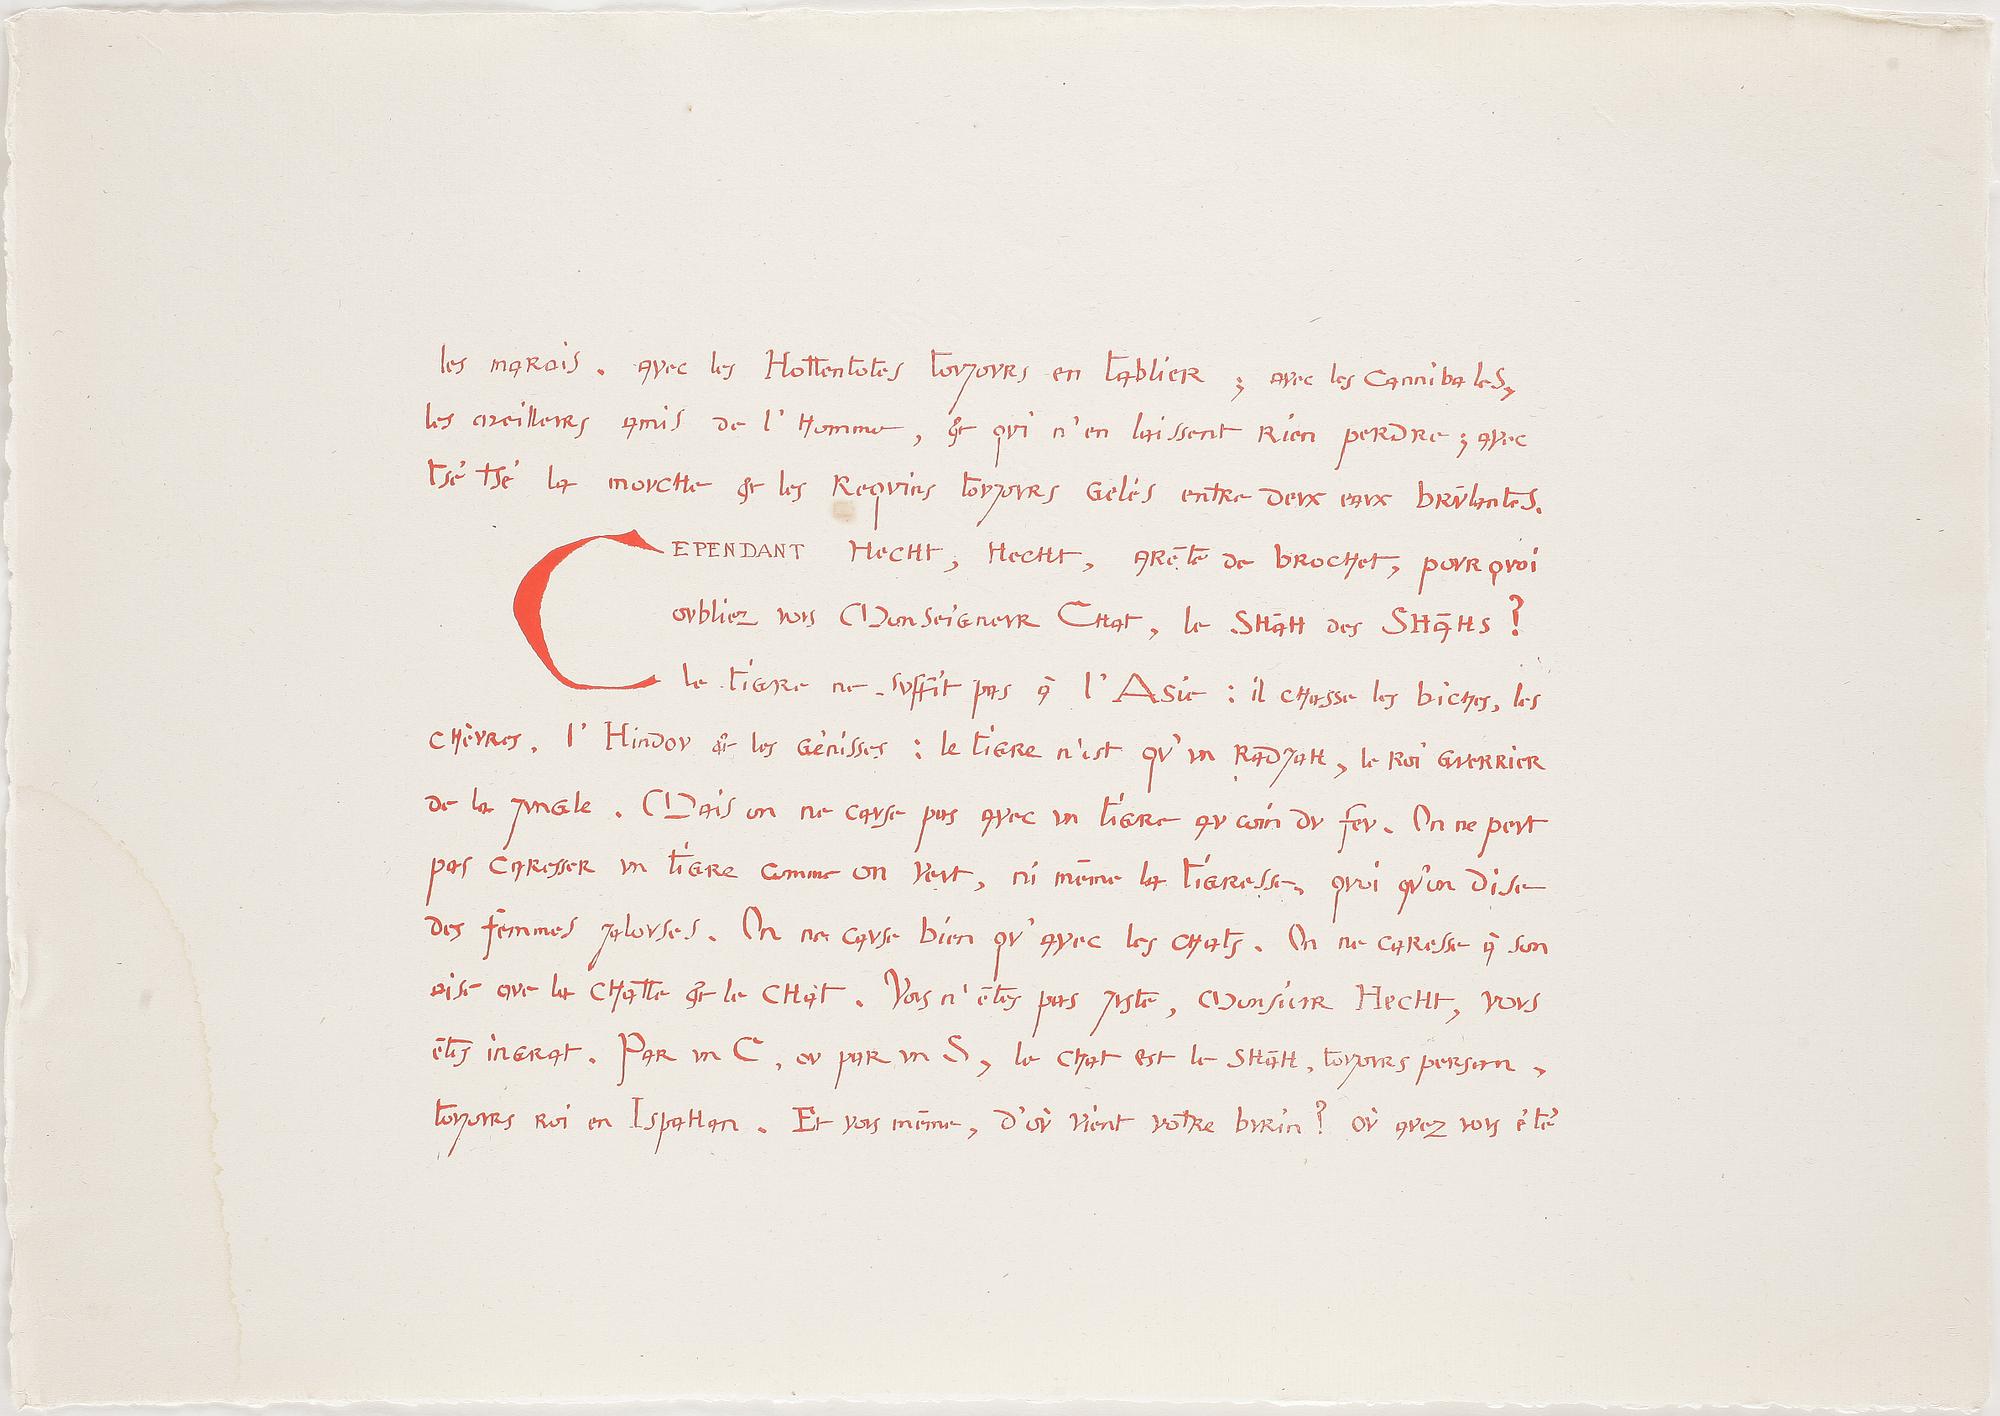 les marais. avec les Hottentotes toujours en tablier ; avec les Cannibales,
les meilleurs amis de l'Homme, & qui n'en laissent rien perdre ; avec
tsé tsé la mouche & les Requins toujours gelés entre deux eaux brûlantes.
CEPENDANT Hecht, Hecht, arête de brochet, pourquoi
oubliez vous Monseigneur Chat, le Shāh des Shāhs ?
le tigre ne suffit pas à l'Asie : il chasse les biches, les
chèvres, l'Hindou & les génisses : le tigre n'est qu'un Radjah, le roi guerrier
de la jungle. Mais on ne cause pas avec un tigre au coin du feu. On ne peut
pas caresser un tigre comme on veut, ni même la tigresse, quoi qu'on dise
des femmes jalouses. On ne cause bien qu'avec les chats. On ne caresse à son
aise que la chatte & le chat. Vous n'êtes pas juste, Monsieur Hecht, vous
êtes ingrat. Par un C, ou par un S, le chat est le Shāh, toujours persan,
toujours roi en Ispahan. Et vous même, d'où vient votre burin ? Où avez vous été